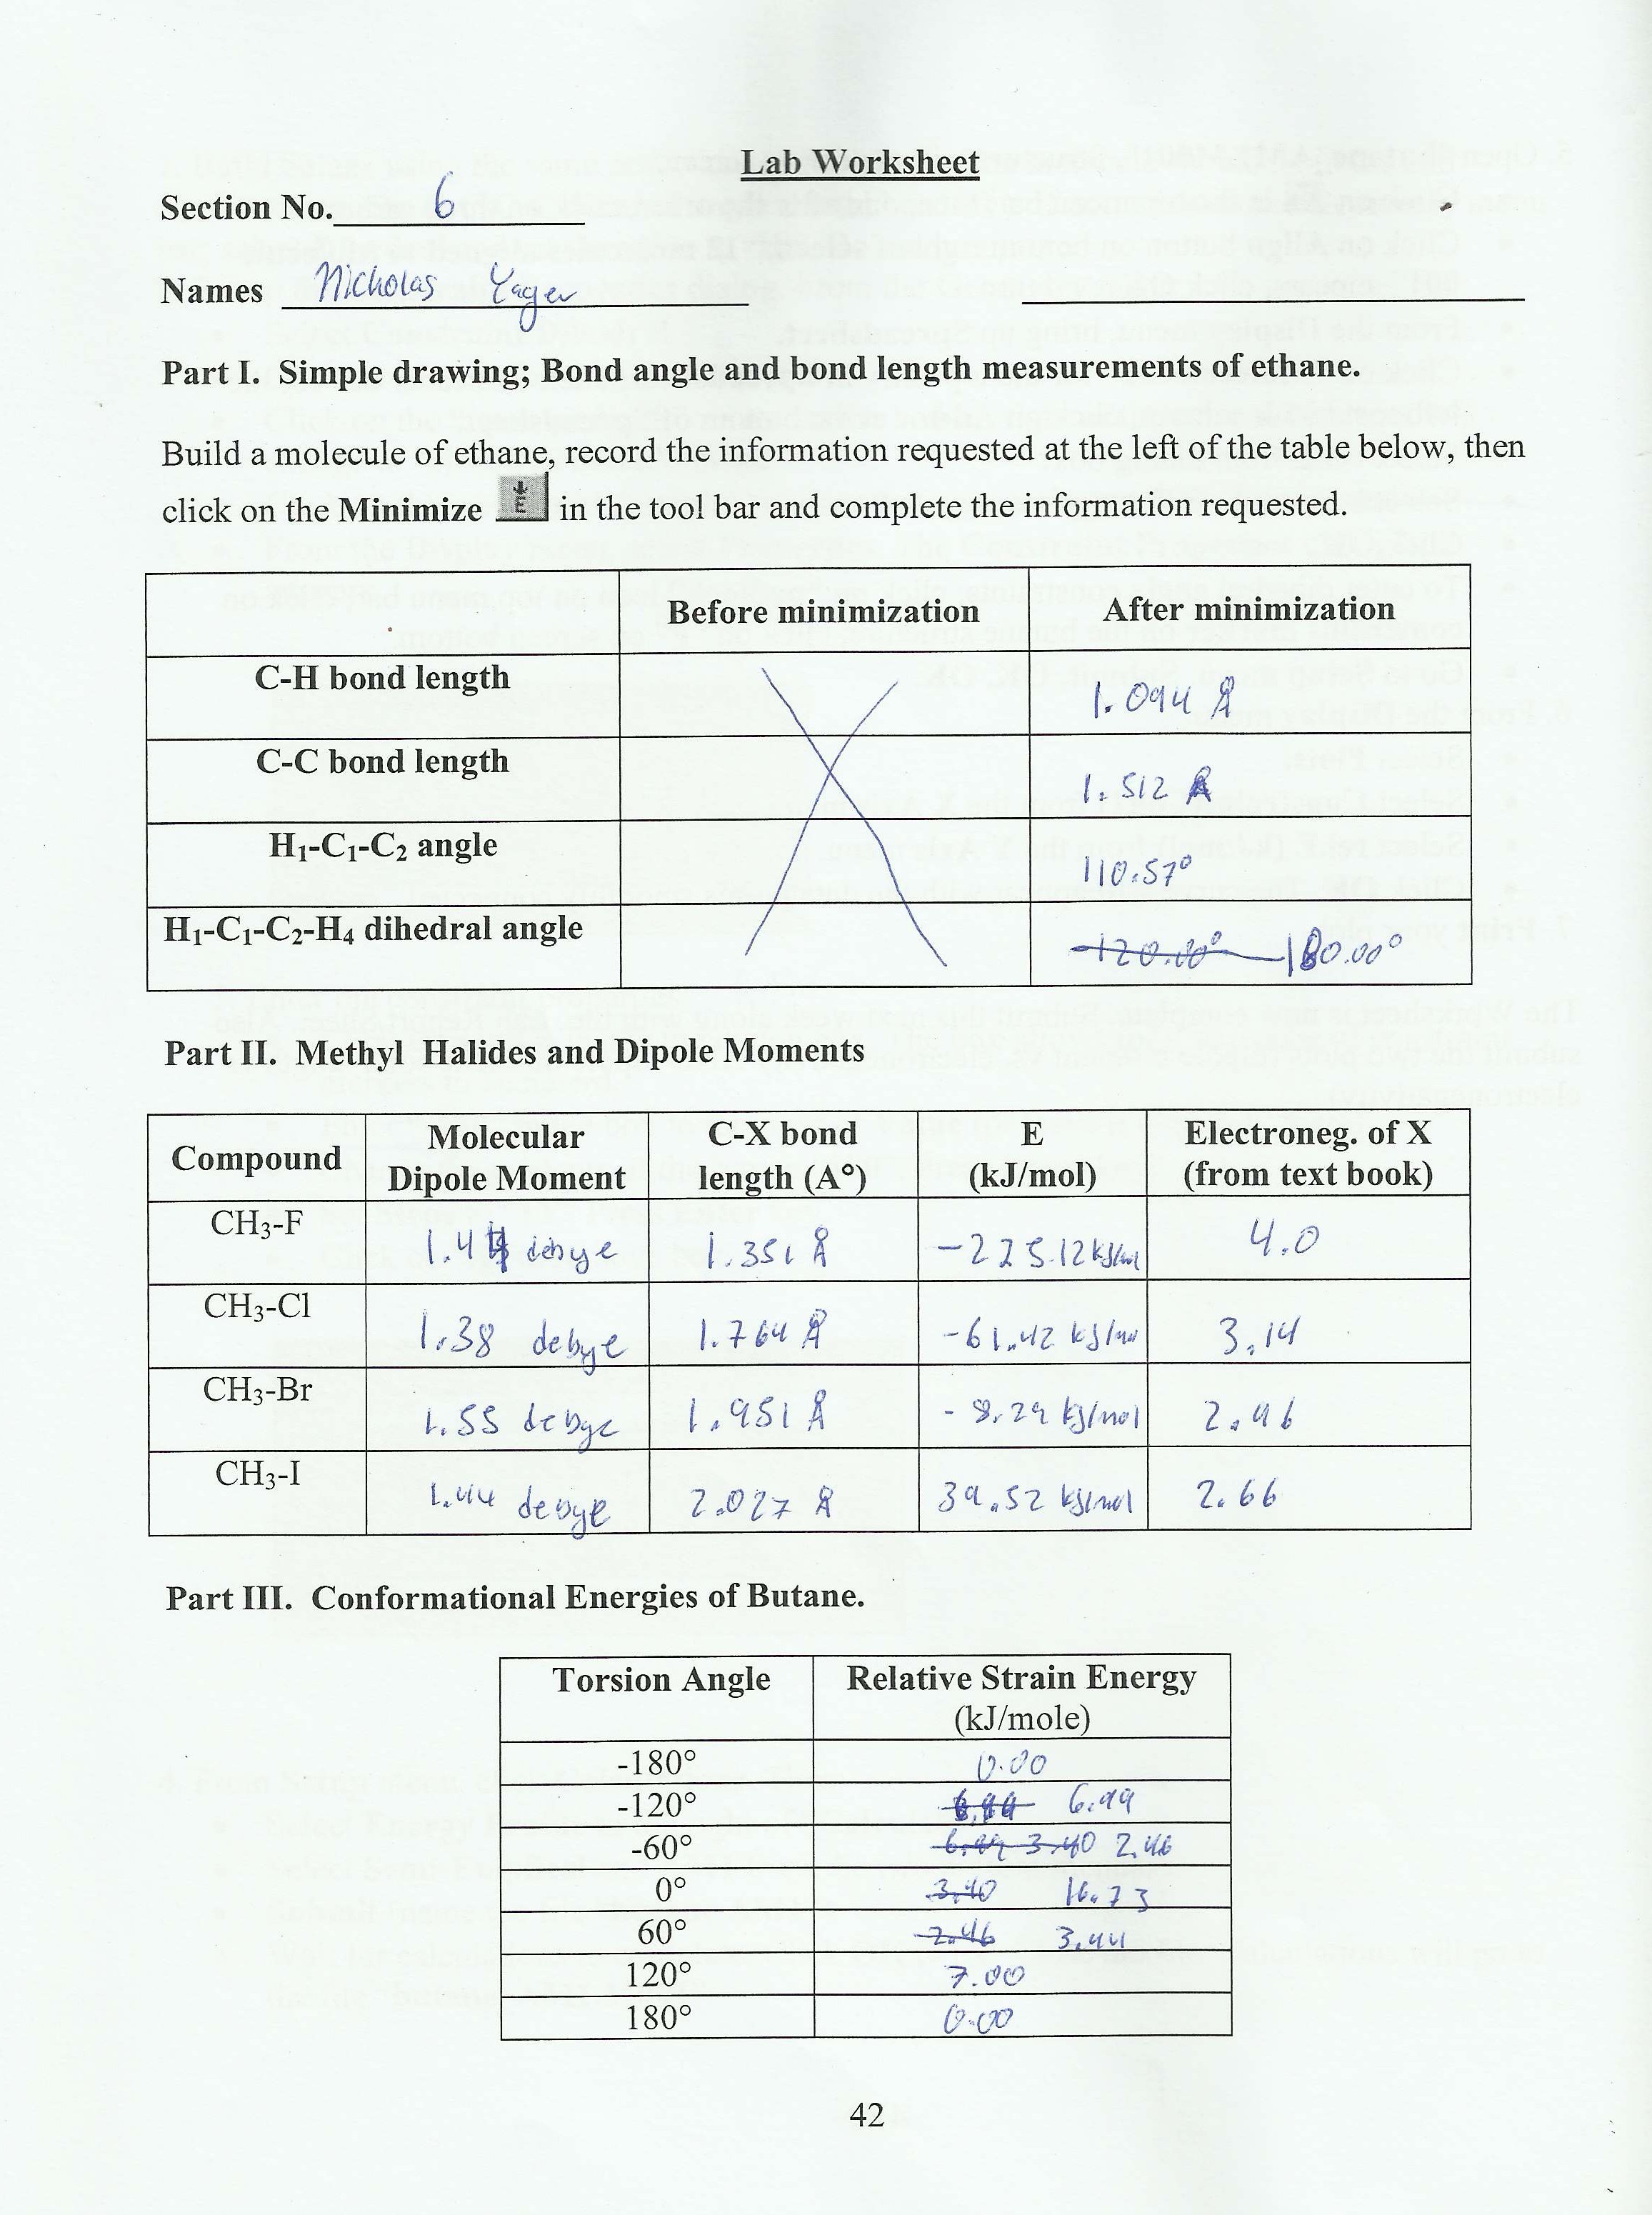 Lab Worksheet
Section No. 6
Names Nicholas Yager
Part I. Simple drawing; Bond angle and bond length measurements of ethane.
Build a molecule of ethane, record the information requested at the left of the table below, then
click on the Minimize E in the tool bar and complete the information requested.
Before minimization After minimization
C-H bond length 1.094 Å
C-C bond length 1.512 Å
H₁-C₁-C₂ angle 110.57°
H₁-C₁-C₂-H₄ dihedral angle -120.00° 180.00°
Part II. Methyl Halides and Dipole Moments
Compound Molecular Dipole Moment C-X bond length (A°) E (kJ/mol) Electroneg. of X (from text book)
CH₃-F debye 1.351 Å -225.12 kJ/mol 4.0
CH₃-Cl 1.38 debye 1.764 Å -61.42 kJ/mol 3.14
CH₃-Br 1.55 debye 1.951 Å -8.29 kJ/mol 2.96
CH₃-I 1.44 debye 2.027 Å 39.52 kJ/mol 2.66
Part III. Conformational Energies of Butane.
Torsion Angle Relative Strain Energy
(kJ/mole)
-180° 0.00
-120° 6.99
-60° 6.99 3.40 2.46
0° 3.40 16.73
60° 2.46 3.44
120° 7.00
180° 0.00
42